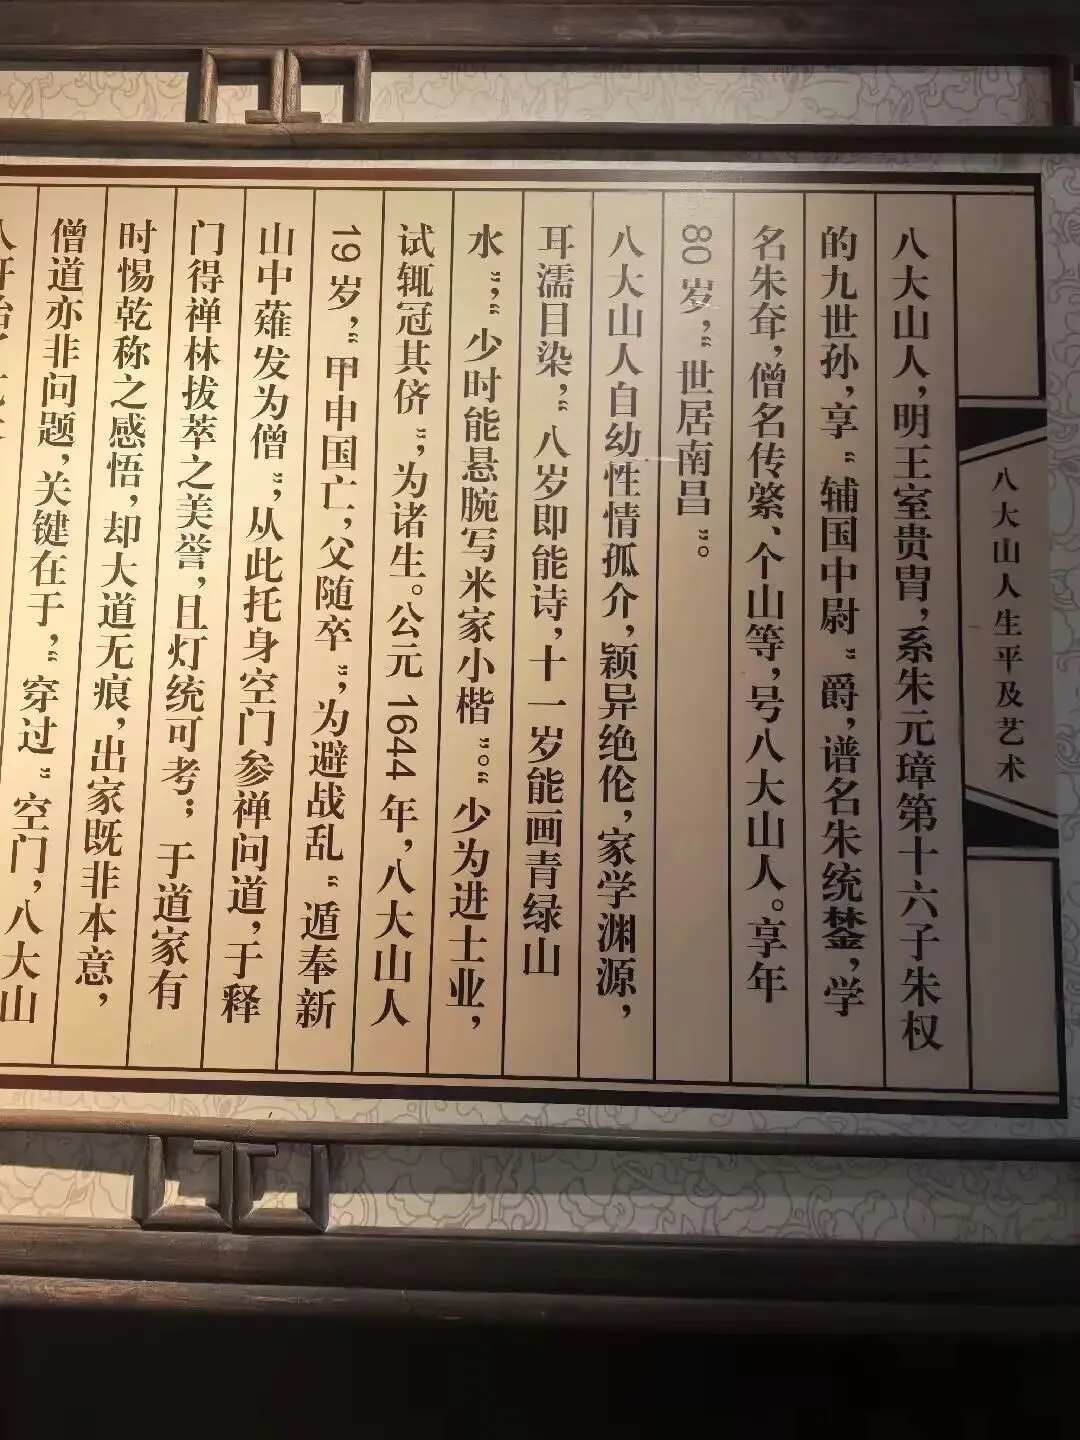 八大山人生平及艺术
八大山人，明王室贵胄，系朱元璋第十六子朱权
的九世孙，享“辅国中尉”爵，谱名朱统𨨗，学
名朱耷，僧名传綮、个山等，号八大山人。享年
80岁，“世居南昌”。
八大山人自幼性情孤介，颖异绝伦，家学渊源，
耳濡目染，“八岁即能诗，十一岁能画青绿山
水”，“少时能悬腕写米家小楷”。“少为进士业，
试辄冠其侪”，为诸生。公元1644年，八大山人
19岁，“甲申国亡，父随卒”，为避战乱“遁奉新
山中薙发为僧”，从此托身空门参禅问道，于释
门得禅林拔萃之美誉，且灯统可考；于道家有
时惕乾称之感悟，却大道无痕，出家既非本意，
僧道亦非问题，关键在于，“穿过”空门，八大山